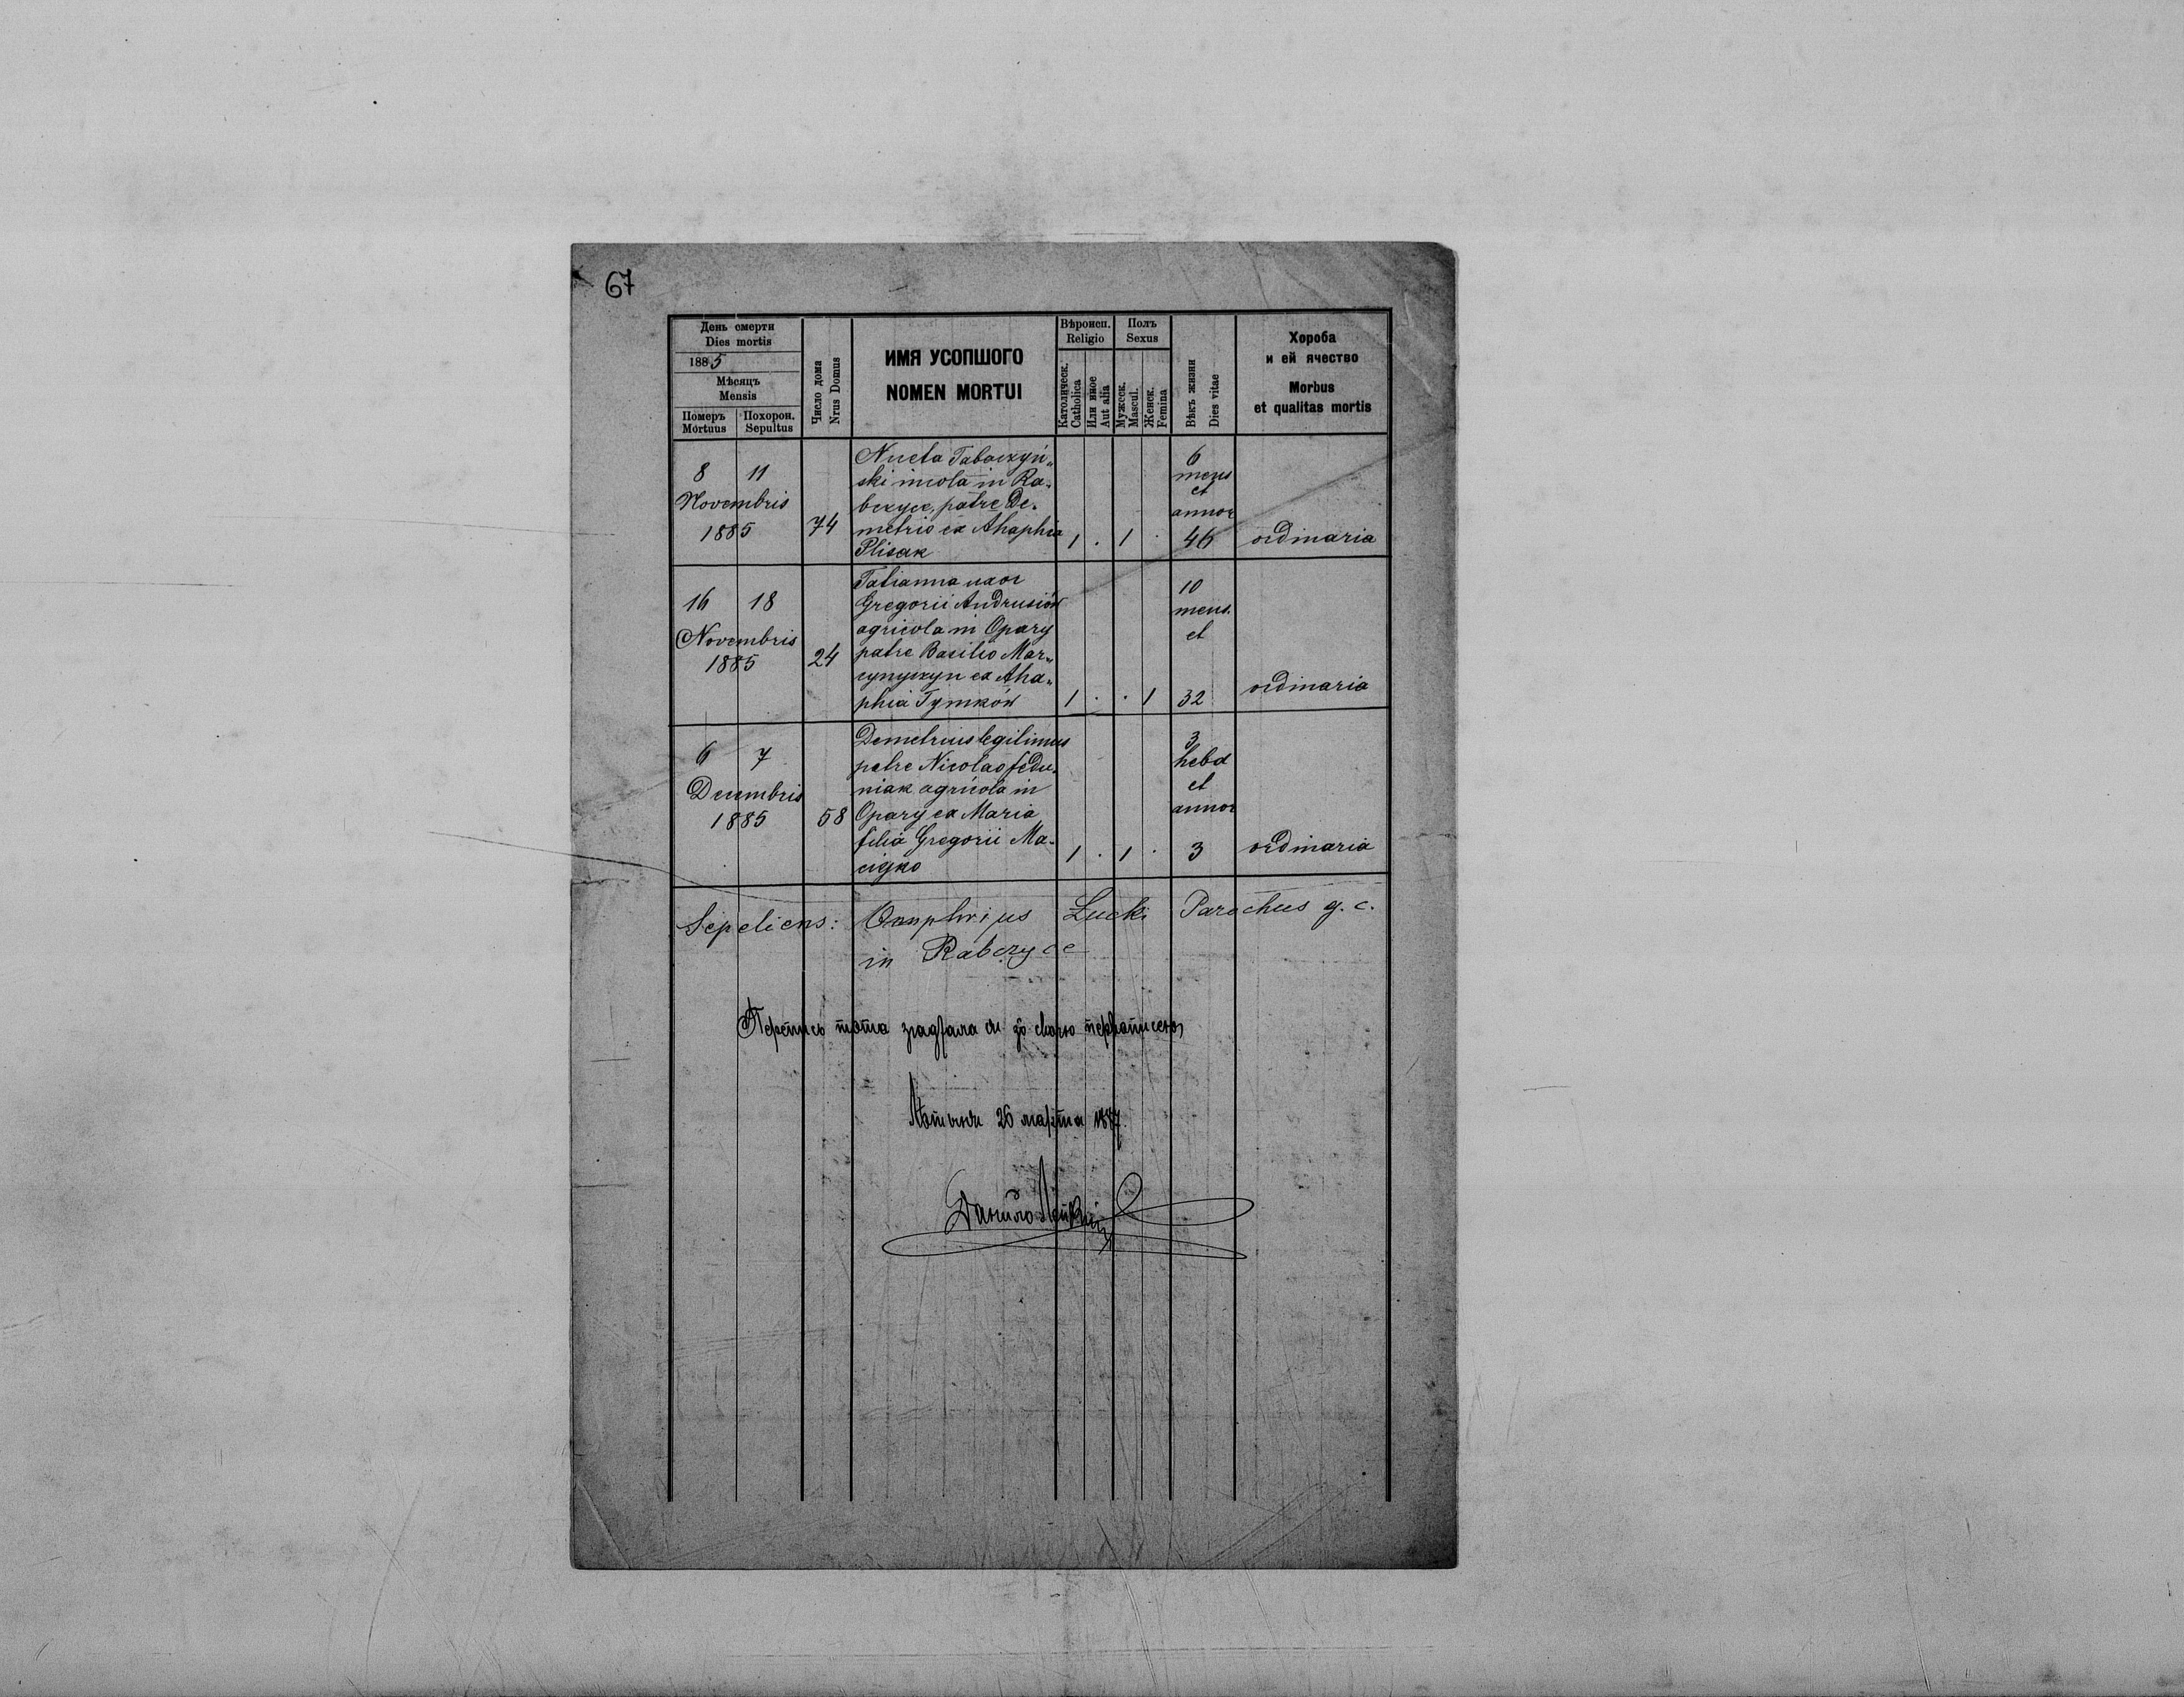 67
День смерти
Dies mortis
1885
Мѣсяцъ
Mensis
Померъ Похорон.
Mortuus Sepultus
Число дома
Nrus Domus
ИМЯ УСОПШОГО
NOMEN MORTUI
Вѣроисп.
Religio
Католическ.
Catholica
Или инное
Aut alia
Полъ
Sexus
Мужеск.
Mascul.
Женск.
Femina
Вѣкъ жизни
Dies vitae
Хороба
и ей ячество
Morbus
et qualitas mortis
8 11
Novembris
1885
74
Tabaczyń„
ski incola in Ra„
bczyce, patre De„
metrio ex Ahaphia
Plisak
1 . 1 .
6
mens
et
annor
46
ordinaria
16 18
Novembris
1885
24
Tatianna uxor
Gregorii Andrusiów
agricola in Opary
patre Basilio Mar„
cynyszyn ex Aha„
phia Tymków
1 . . 1
10
mens.
et
32
ordinaria
6 7
Decembris
1885
58
Demetrius legitimus
patre Nicolao Fedu„
niak agricola in
Opary ex Maria
filia Gregorii Ma„
cijko
1 . 1 .
3
hebd
et
annor
3
ordinaria
Sepeliens: Onuphrius Łucki Parochus g. c.
in Rabczyce
Перепись тота
26 марта 1887.
Данило